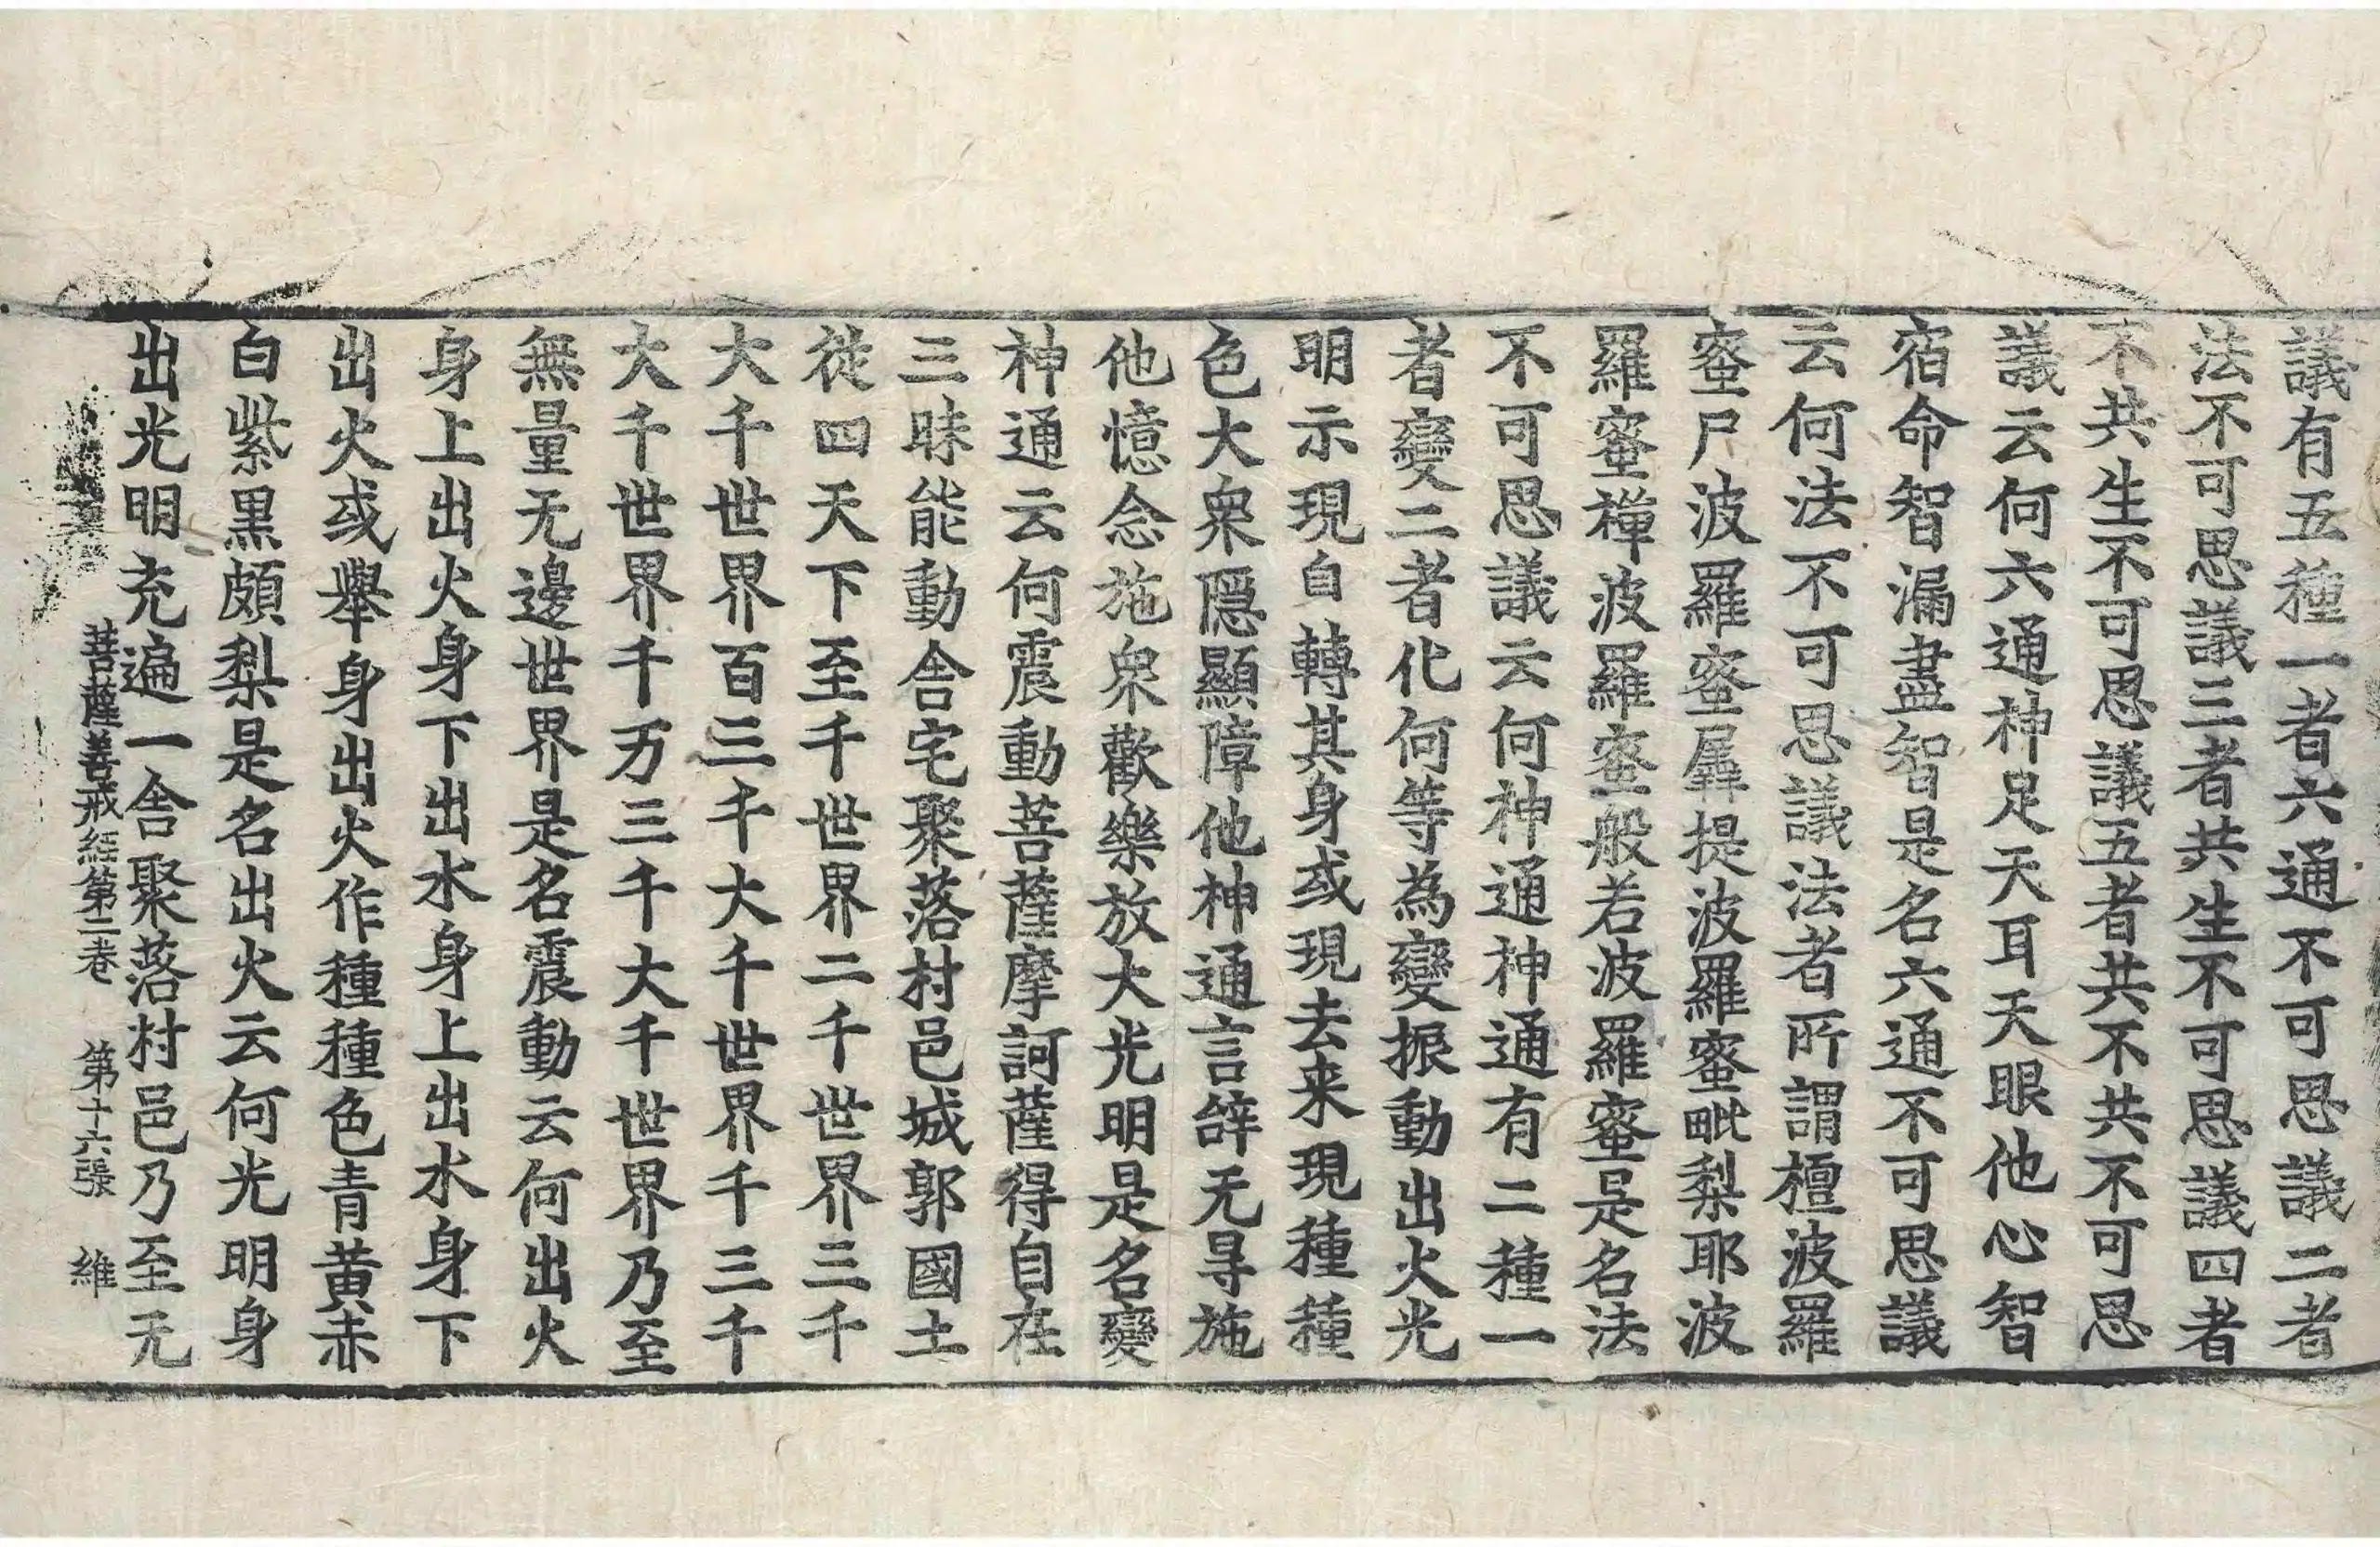 議有五種一者六通不可思議二者
法不可思議三者共生不可思議四者
不共生不可思議五者共不共不可思
議云何六通神足天耳天眼他心智
宿命智漏盡智是名六通不可思議
云何法不可思議法者所謂檀波羅
蜜尸波羅蜜羼提波羅蜜毗梨耶波
羅蜜禪波羅蜜般若波羅蜜是名法
不可思議云何神通神通有二種一
者變二者化何等為變振動出火光
明示現自轉其身或現去来現種種
色大衆隠顯障他神通言辝无㝵施
他憶念施衆歡樂放大光明是名變
神通云何震動菩薩摩訶薩得自在
三昧能動舎宅聚落村邑城郭國土
從四天下至千世界二千世界三千
大千世界百三千大千世界千三千
大千世界千万三千大千世界乃至
無量无邊世界是名震動云何出火
身上出火身下出水身上出水身下
出火或舉身出火作種種色青黄赤
白紫黒頗梨是名出火云何光明身
出光明充遍一舎聚落村邑乃至无
菩薩善戒経第二巻 第十六張 維